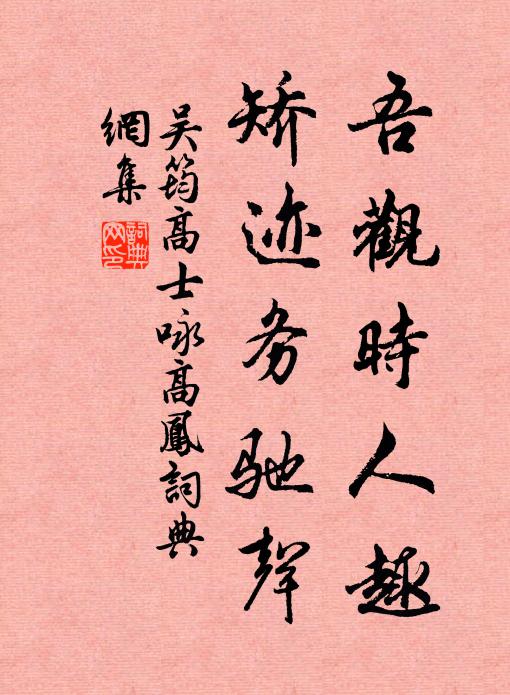 吾觀時人趣
矫迹务驰聲
吴筠高士咏高鳳詞典
網集
詞典網印